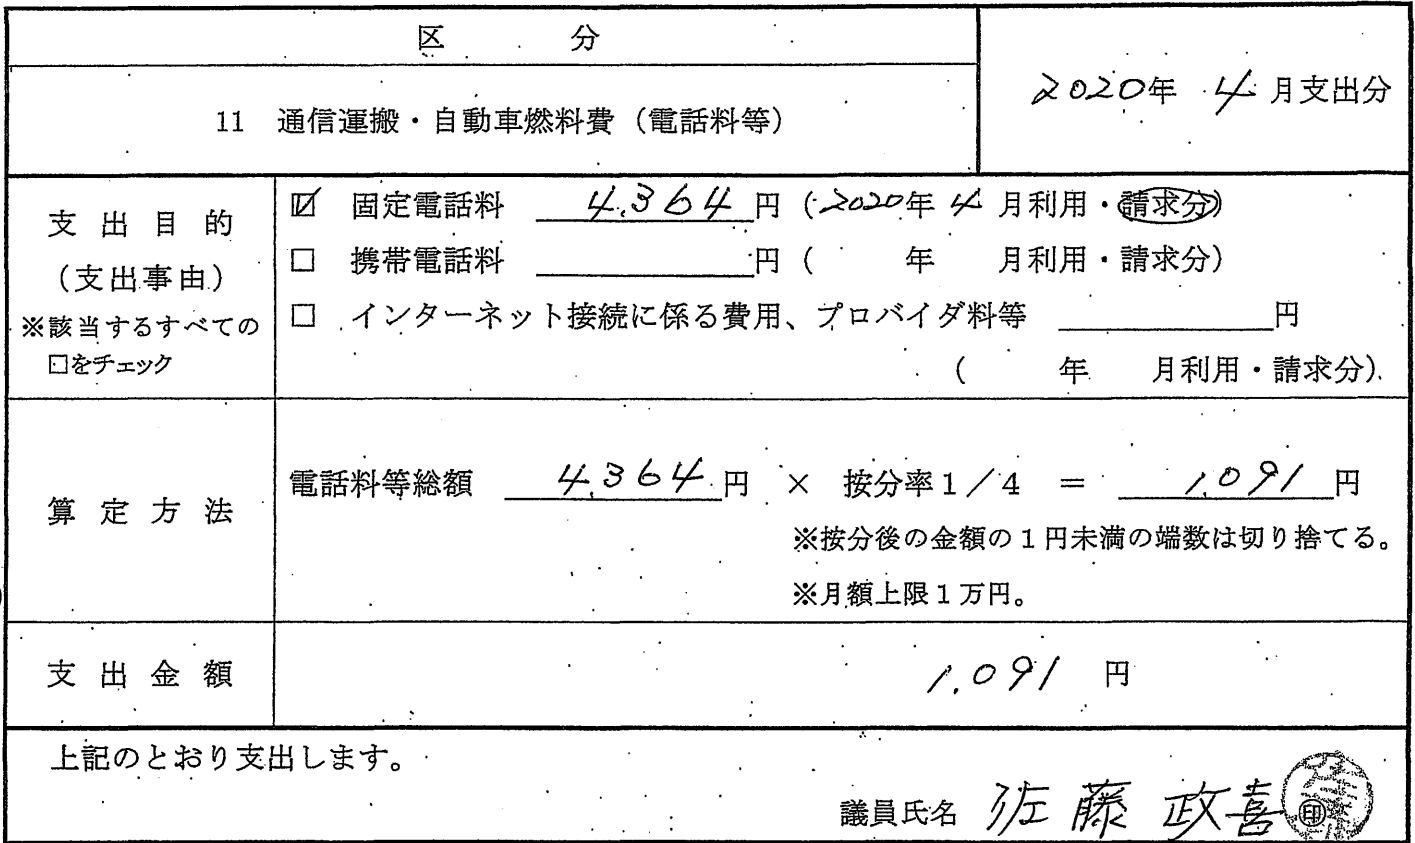 区 分
2020年 4月支出分
11 通信運搬・自動車燃料費（電話料等）
支出目的
（支出事由）
※該当するすべての
□をチェック
☑ 固定電話料 4,364円（2020年4月利用・請求分）
□ 携帯電話料 円（ 年 月利用・請求分）
□ インターネット接続に係る費用、プロバイダ料等 円
（ 年 月利用・請求分）
算定方法
電話料等総額 4,364円 × 按分率1／4 ＝ 1,091円
※按分後の金額の1円未満の端数は切り捨てる。
※月額上限1万円。
支出金額
1,091 円
上記のとおり支出します。
議員氏名 佐藤 政喜 ㊞